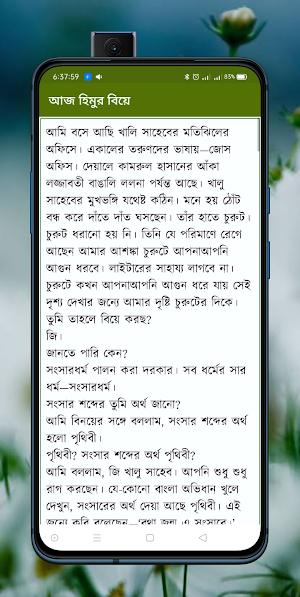 6:37:59
83%
আজ হিমুর বিয়ে
আমি বসে আছি খালি সাহেবের মতিঝিলের
অফিসে। একালের তরুণদের ভাষায়—জোস
অফিস। দেয়ালে কামরুল হাসানের আঁকা
লজ্জাবতী বাঙালি ললনা পর্যন্ত আছে। খালু
সাহেবের মুখভঙ্গি যথেষ্ট কঠিন। মনে হয় ঠোঁট
বন্ধ করে দাঁতে দাঁত ঘসছেন। তাঁর হাতে চুরুট।
চুরুট ধরানো হয় নি। তিনি যে পরিমাণে রেগে
আছেন আমার আশঙ্কা চুরুটে আপনাআপনি
আগুন ধরবে। লাইটারের সাহায্য লাগবে না।
চুরুটে কখন আপনাআপনি আগুন ধরে যায় সেই
দৃশ্য দেখার জন্যে আমার দৃষ্টি চুরুটের দিকে।
তুমি তাহলে বিয়ে করছ?
জি।
জানতে পারি কেন?
সংসারধর্ম পালন করা দরকার। সব ধর্মের সার
ধর্ম—সংসারধর্ম।
সংসার শব্দের তুমি অর্থ জানো?
আমি বিনয়ের সঙ্গে বললাম, সংসার শব্দের অর্থ
হলো পৃথিবী।
পৃথিবী? সংসার শব্দের অর্থ পৃথিবী?
আমি বললাম, জি খালু সাহেব। আপনি শুধু শুধু
রাগ করছেন। যে-কোনো বাংলা অভিধান খুলে
দেখুন, সংসারের অর্থ দেয়া আছে পৃথিবী। এই
জন্যে কবি বলেছেন—'বৃথা জন্ম এ সংসারে।'